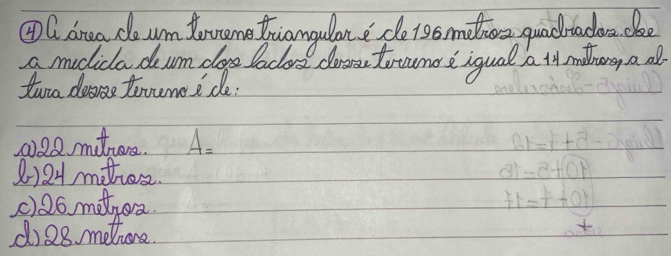 ④ A área de um terreno triangular é de 196 metros quadrados. Se
a medida de um dos lados desse terreno é igual a 14 metros, a al-
tura desse terreno é de:
a) 22 metros. A=
b) 24 metros.
c) 26 metros.
d) 28 metros.